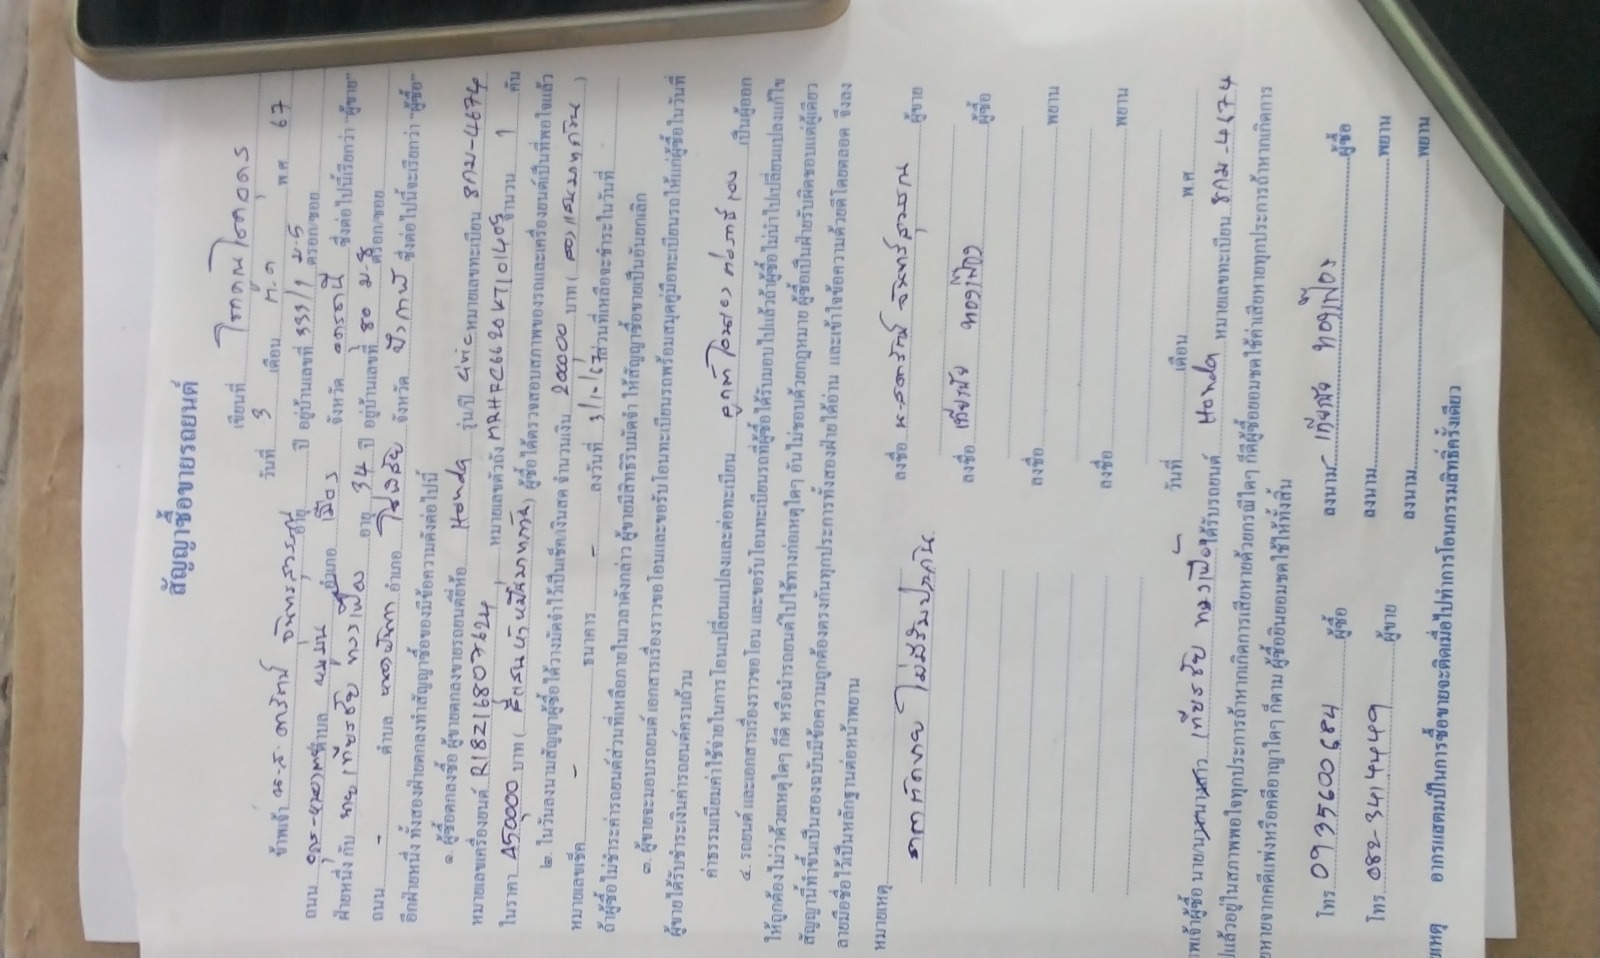 สัญญาซื้อขายรถยนต์
เขียนที่
วันที่ 3 เดือน ต.ค พ.ศ 67
ข้าพเจ้า น.ส. ดารัตน์ จันทร์สุวรรณ อายุ ปี อยู่บ้านเลขที่ 999/1 ม.5 ตรอก/ซอย
ถนน ตำบล อำเภอ เมือง จังหวัด อุดรธานี ซึ่งต่อไปนี้เรียกว่า "ผู้ขาย"
ฝ่ายหนึ่ง กับ นาย เกียรชัย ทองเฟือง อายุ 34 ปี อยู่บ้านเลขที่ 80 ม.8 ตรอก/ซอย
ถนน - ตำบล อำเภอ โซ่พิสัย จังหวัด บึงกาฬ ซึ่งต่อไปนี้จะเรียกว่า "ผู้ซื้อ"
อีกฝ่ายหนึ่ง ทั้งสองฝ่ายตกลงทำสัญญาซื้อของมีข้อความดังต่อไปนี้
๑. ผู้ซื้อตกลงซื้อ ผู้ขายตกลงขายรถยนต์ยี่ห้อ Honda รุ่น/ปี civic หมายเลขทะเบียน 8กม-4674
หมายเลขเครื่องยนต์ R18Z16807624 หมายเลขตัวถัง MRHFC6620KT101405 จำนวน 1 คัน
ในราคา 450000 บาท ( สี่แสนห้าหมื่นบาทถ้วน ) ผู้ซื้อได้ตรวจสอบสภาพของรถและเครื่องยนต์เป็นที่พอใจแล้ว
๒. ในวันลงนามสัญญาผู้ซื้อได้วางมัดจำไว้เป็นเช็ค/เงินสด จำนวนเงิน 200000 บาท ( สองแสนบาทถ้วน )
หมายเลขเช็ค - ธนาคาร - ลงวันที่ 3/10/67 ส่วนที่เหลือจะชำระในวันที่
ถ้าผู้ซื้อไม่ชำระค่ารถยนต์ส่วนที่เหลือภายในเวลาดังกล่าว ผู้ขายมีสิทธิริบมัดจำ ให้สัญญาซื้อขายเป็นอันยกเลิก
๓. ผู้ขายจะมอบรถยนต์ เอกสารเรื่องราวขอโอนและขอรับโอนทะเบียนรถพร้อมสมุดคู่มือทะเบียนรถให้แก่ผู้ซื้อในวันที่
ผู้ขายได้รับชำระเงินค่ารถยนต์ครบถ้วน
ค่าธรรมเนียมค่าใช้จ่ายในการโอนเปลี่ยนแปลงและต่อทะเบียน ลูกค้าโอนเอง ต่อภาษีเอง เป็นผู้ออก
๔. รถยนต์ และเอกสารเรื่องราวขอโอน และขอรับโอนทะเบียนรถที่ผู้ซื้อได้รับมอบไปแล้วถ้าผู้ซื้อไม่นำไปเปลี่ยนแปลงแก้ไข
ให้ถูกต้องไม่ว่าด้วยเหตุใดๆ ก็ดี หรือนำรถยนต์ไปใช้ทางก่อเหตุใดๆ อันไม่ชอบด้วยกฎหมาย ผู้ซื้อเป็นฝ่ายรับผิดชอบแต่ผู้เดียว
สัญญานี้ทำขึ้นเป็นสองฉบับมีข้อความถูกต้องตรงกันทุกประการทั้งสองฝ่ายได้อ่าน และเข้าใจข้อความด้วยดีโดยตลอด จึงลง
ลายมือชื่อไว้เป็นหลักฐานต่อหน้าพยาน
หมายเหตุ
ไม่มีรับประกัน
ลงชื่อ น.ส ดารัตน์ จันทร์สุวรรณ ผู้ขาย
ลงชื่อ เกียรชัย ทองเฟือง ผู้ซื้อ
ลงชื่อ พยาน
ลงชื่อ พยาน
วันที่ เดือน พ.ศ
พเจ้าผู้ซื้อ นาย/นาง/นางสาว เกียรชัย ทองเฟือง ได้รับรถยนต์ Honda หมายเลขทะเบียน 8กม-4674
ปแล้วอยู่ในสภาพพอใจทุกประการถ้าหากเกิดการเสียหายด้วยกรณีใดๆ ก็ดีผู้ซื้อยอมชดใช้ค่าเสียหายทุกประการถ้าหากเกิดการ
ยหายจากคดีแพ่งหรือคดีอาญาใดๆ ก็ตาม ผู้ซื้อยินยอมชดใช้ให้ทั้งสิ้น
โทร 0935600684 ผู้ซื้อ ลงนาม เกียรชัย ทองเฟือง ผู้ซื้อ
โทร 082-3414449 ผู้ขาย ลงนาม พยาน
ลงนาม พยาน
ยเหตุ อากรแสตมป์ในการซื้อขายจะติดเมื่อไปทำการโอนกรรมสิทธิ์ครั้งเดียว